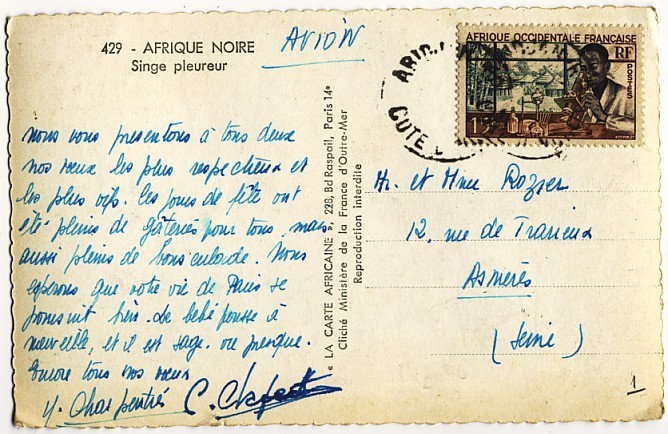 429 - AFRIQUE NOIRE
Singe pleureur
AVION
AFRIQUE OCCIDENTALE FRANÇAISE
RF
15F
ABIDJAN
COTE D'IVOIRE
nous vous présentons à tous deux
nos vœux les plus respectueux et
les plus vifs. les jours de fête ont
été pleins de gâteries pour tous, mais
aussi pleins de bousculade. Nous
espérons que votre vie de Paris se
poursuit bien. Le bébé pousse à
merveille, et il est sage. ou presque.
Encore tous nos vœux
y. Charpentié
« LA CARTE AFRICAINE », 228, Bd Raspail, Paris 14e
Cliché Ministère de la France d'Outre-Mer
Reproduction interdite
Mr. et Mme Rozier
12, rue de
Asnières
(Seine)
1